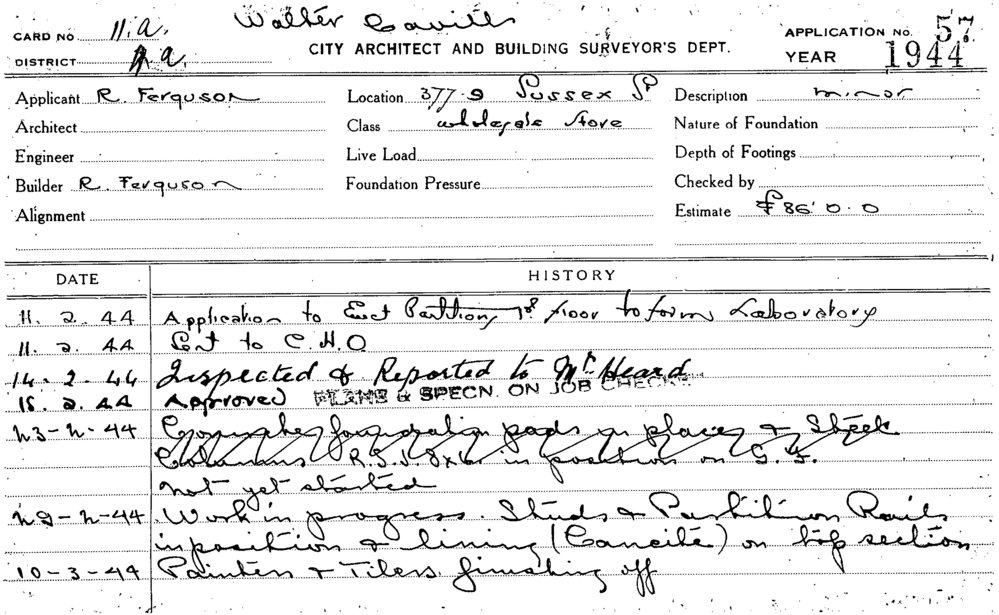 Walter Cavill
CARD NO. 11.a.
DISTRICT 4a.
CITY ARCHITECT AND BUILDING SURVEYOR'S DEPT.
APPLICATION NO. 57
YEAR 1944
Applicant R. Ferguson
Location 377-9 Sussex St
Description minor
Architect
Class wholesale store
Nature of Foundation
Engineer
Live Load
Depth of Footings
Builder R. Ferguson
Foundation Pressure
Checked by
Alignment
Estimate £86.0.0
DATE HISTORY
11. 2. 44 Application to Erect Partitions 1st floor to form Laboratory
11. 2. 44 Sent to C.H.O
14. 2. 44 Inspected & Reported to Mr Heard
15. 2. 44 Approved PLANS & SPECN. ON JOB CHECKED
23-2-44 foundation pads in place & Steel
Columns R.S.J. 8x6 in position on G.F.
not yet started
29-2-44 Work in progress. Studs & Partition Rails
in position & lining (Caneite) on top section
10-3-44 Painters & Tilers finishing off